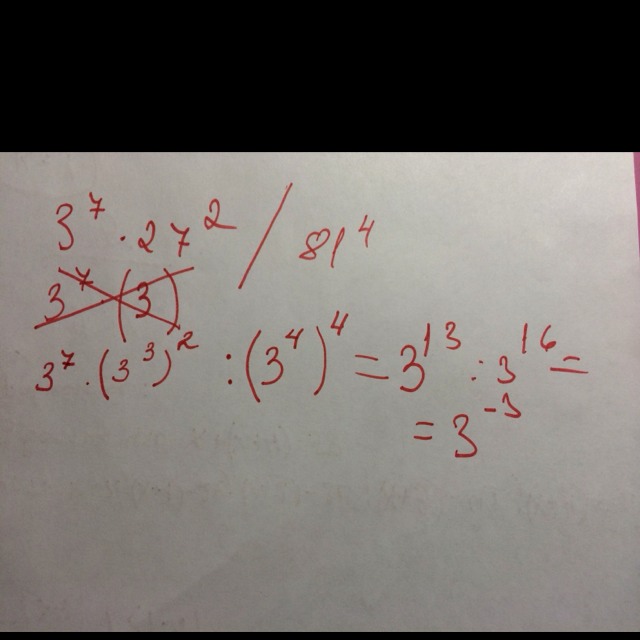 3⁷ · 27² / 81⁴
3⁷ (3)
3⁷ · (3³)² : (3⁴)⁴ = 3¹³ : 3¹⁶ =
= 3⁻³